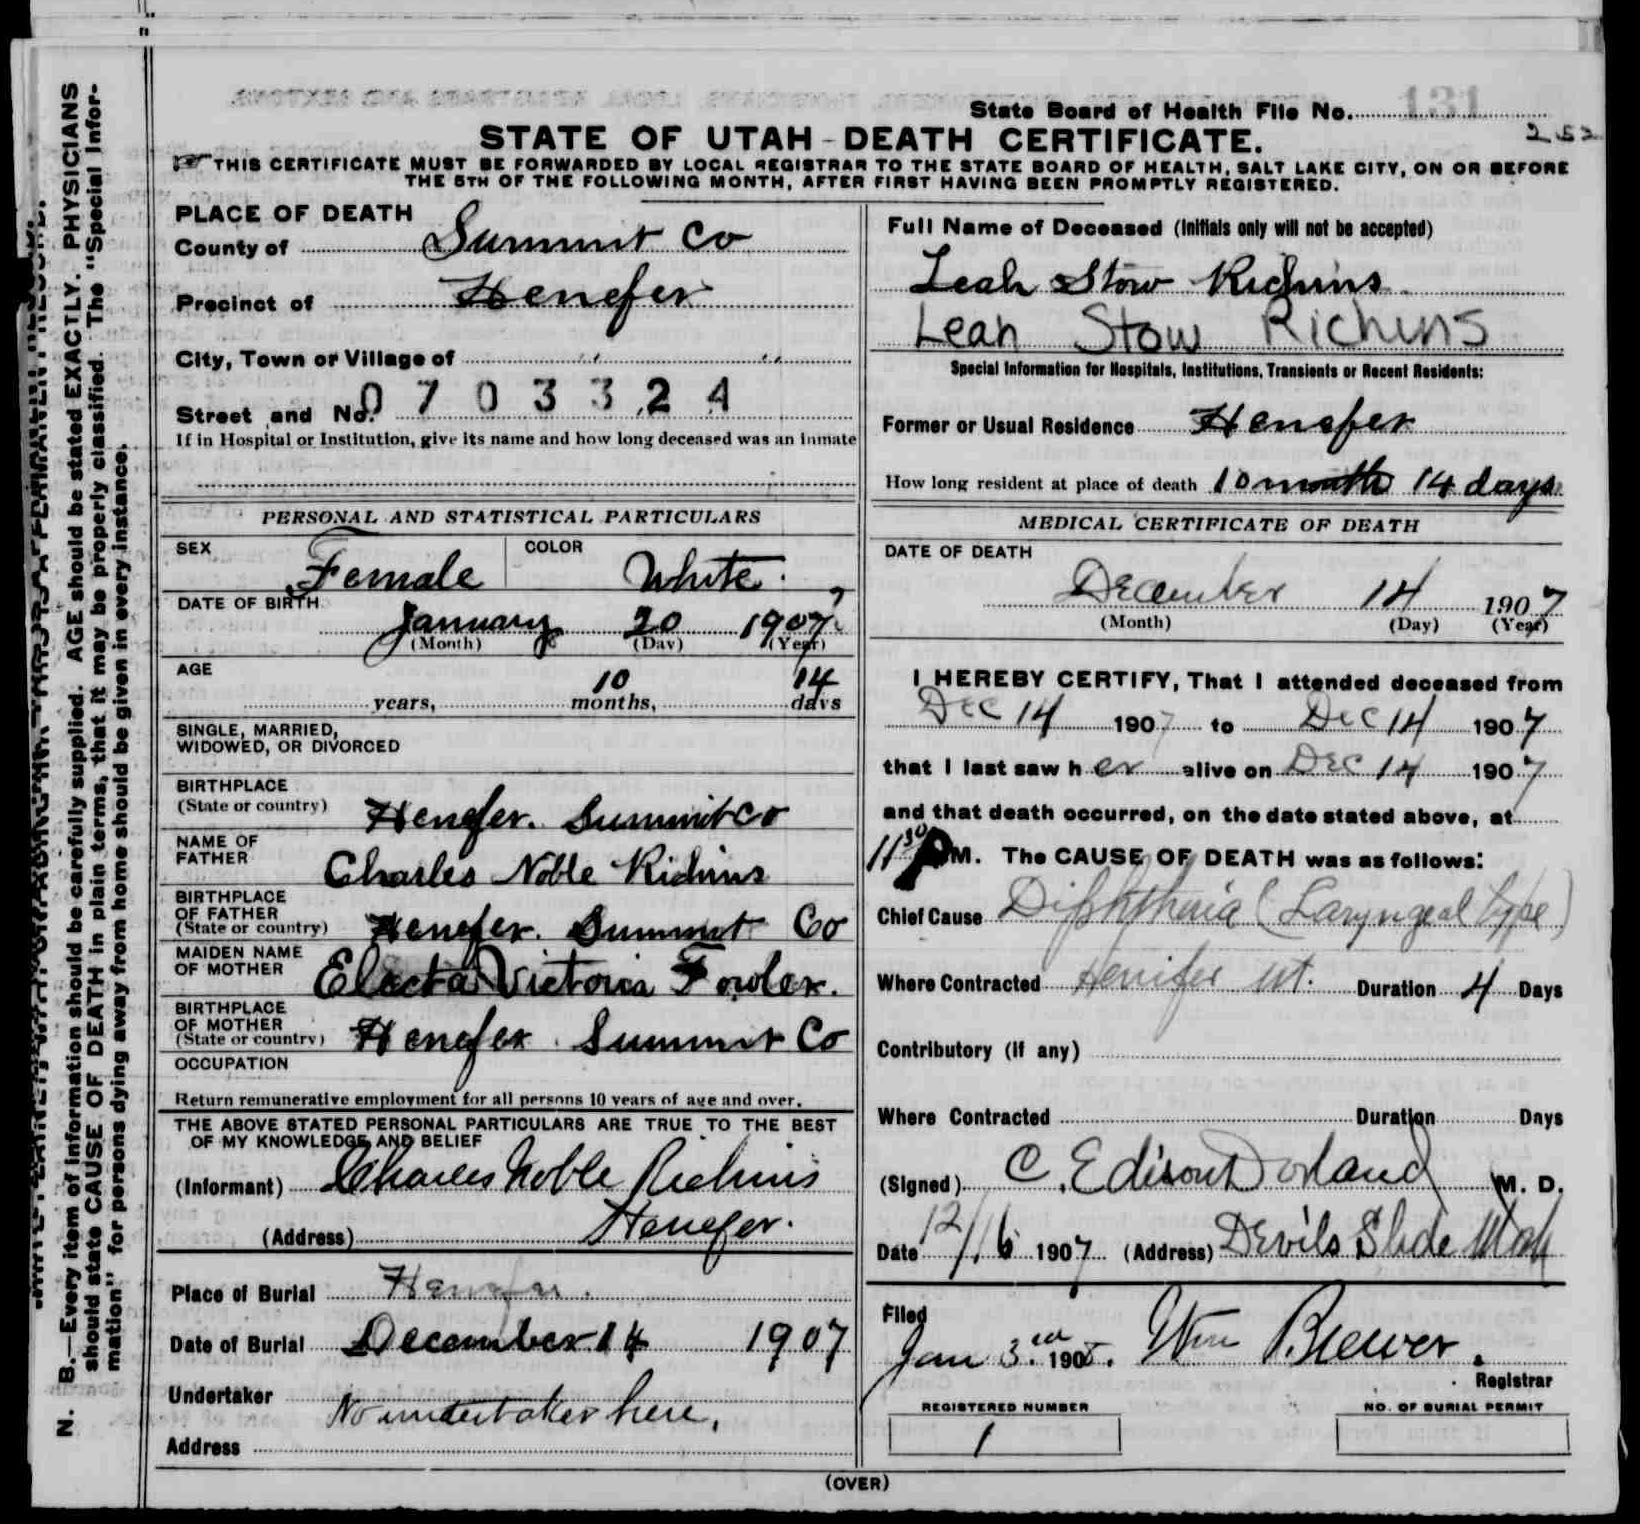 State Board of Health File No. 131
252
STATE OF UTAH - DEATH CERTIFICATE.
THIS CERTIFICATE MUST BE FORWARDED BY LOCAL REGISTRAR TO THE STATE BOARD OF HEALTH, SALT LAKE CITY, ON OR BEFORE
THE 5TH OF THE FOLLOWING MONTH, AFTER FIRST HAVING BEEN PROMPTLY REGISTERED.
PLACE OF DEATH
County of Summit Co
Precinct of Henefer
City, Town or Village of " "
Street and No. 0703324
If in Hospital or Institution, give its name and how long deceased was an inmate
PERSONAL AND STATISTICAL PARTICULARS
SEX Female COLOR White.
DATE OF BIRTH January 20 1907
(Month) (Day) (Year)
AGE 10 14
years, months, days
SINGLE, MARRIED,
WIDOWED, OR DIVORCED
BIRTHPLACE
(State or country) Henefer. Summit Co
NAME OF
FATHER Charles Noble Richins
BIRTHPLACE
OF FATHER
(State or country) Henefer. Summit Co
MAIDEN NAME
OF MOTHER Electa Victoria Fowler.
BIRTHPLACE
OF MOTHER
(State or country) Henefer Summit Co
OCCUPATION
Return remunerative employment for all persons 10 years of age and over.
THE ABOVE STATED PERSONAL PARTICULARS ARE TRUE TO THE BEST
OF MY KNOWLEDGE AND BELIEF
(Informant) Charles Noble Richins
(Address) Henefer.
Place of Burial Henefer.
Date of Burial December 14 1907
Undertaker No undertaker here.
Address
Full Name of Deceased (Initials only will not be accepted)
Leah Stow Richins
Leah Stow Richins
Special Information for Hospitals, Institutions, Transients or Recent Residents:
Former or Usual Residence Henefer
How long resident at place of death 10 month 14 days
MEDICAL CERTIFICATE OF DEATH
DATE OF DEATH
December 14 1907
(Month) (Day) (Year)
I HEREBY CERTIFY, That I attended deceased from
Dec 14 1907 to Dec 14 1907
that I last saw her alive on Dec 14 1907
and that death occurred, on the date stated above, at
11 30 P M. The CAUSE OF DEATH was as follows:
Chief Cause Diphtheria (Laryngeal type)
Where Contracted Henifer Ut. Duration 4 Days
Contributory (if any)
Where Contracted Duration Days
(Signed) C. Edison Dorland M. D.
Date 12/16 1907 (Address) Devils Slide Utah
Filed
Jan 3rd 1908. Wm Brewer.
Registrar
REGISTERED NUMBER
1
NO. OF BURIAL PERMIT
(OVER)
N. B.—Every item of information should be carefully supplied. AGE should be stated EXACTLY. PHYSICIANS
should state CAUSE OF DEATH in plain terms, that it may be properly classified. The "Special Infor-
mation" for persons dying away from home should be given in every instance.